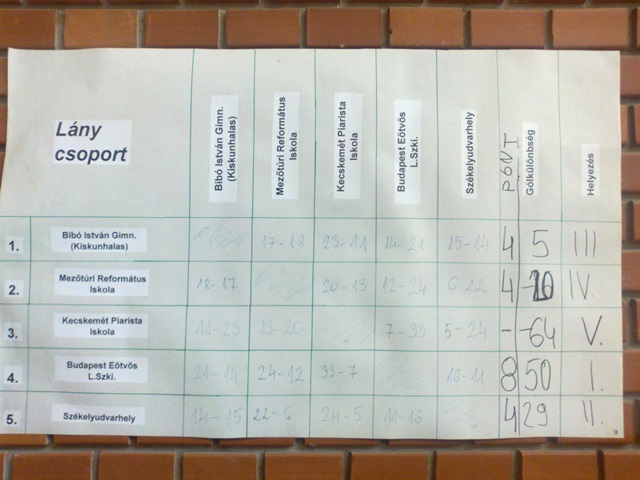 Lány
csoport
Bibó István Gimn.
(Kiskunhalas)
Mezőtúri Református
Iskola
Kecskemét Piarista
Iskola
Budapest Eötvös
L.Szki.
Székelyudvarhely
PÓNT
Gólkülönbség
Helyezés
1. Bibó István Gimn.
(Kiskunhalas) 17-18 23-11 14-21 15-14 4 5 III
2. Mezőtúri Református
Iskola 18-17 20-13 12-24 6-22 4 IV.
3. Kecskemét Piarista
Iskola 11-23 13-20 7-33 5-24 - -64 V.
4. Budapest Eötvös
L.Szki. 21-14 24-12 33-7 16-11 8 50 I.
5. Székelyudvarhely 14-15 22-6 24-5 11-16 4 29 II.